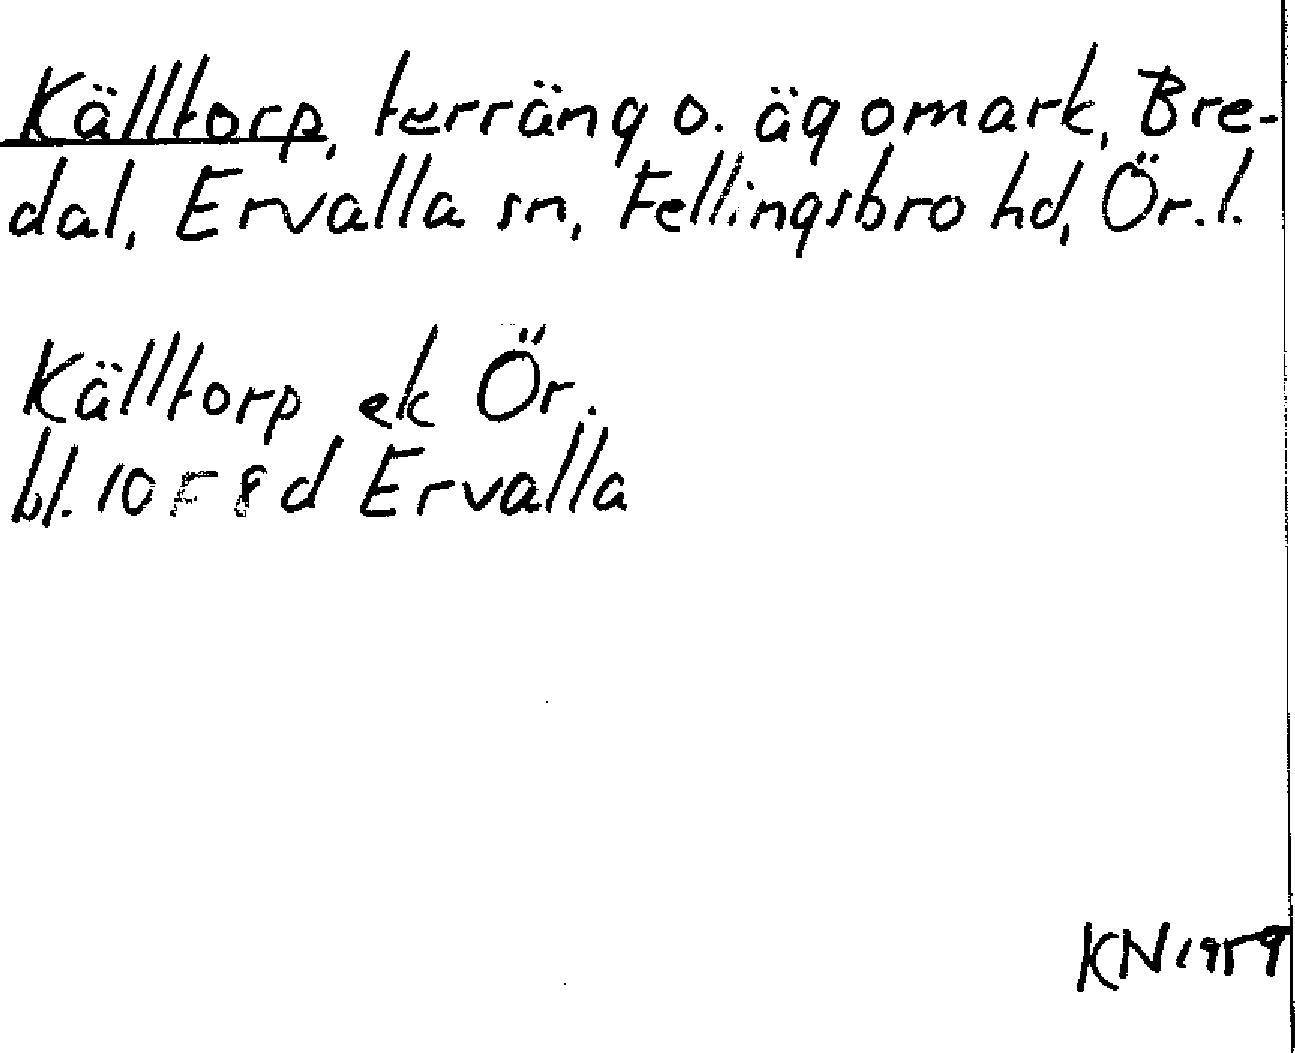 Källtorp, terräng o. ägomark, Bre-
dal, Ervalla sn, Fellingsbro hd, Ör. l.
Källtorp ek Ör.
bl. 10 F 8 d Ervalla
KN 1959